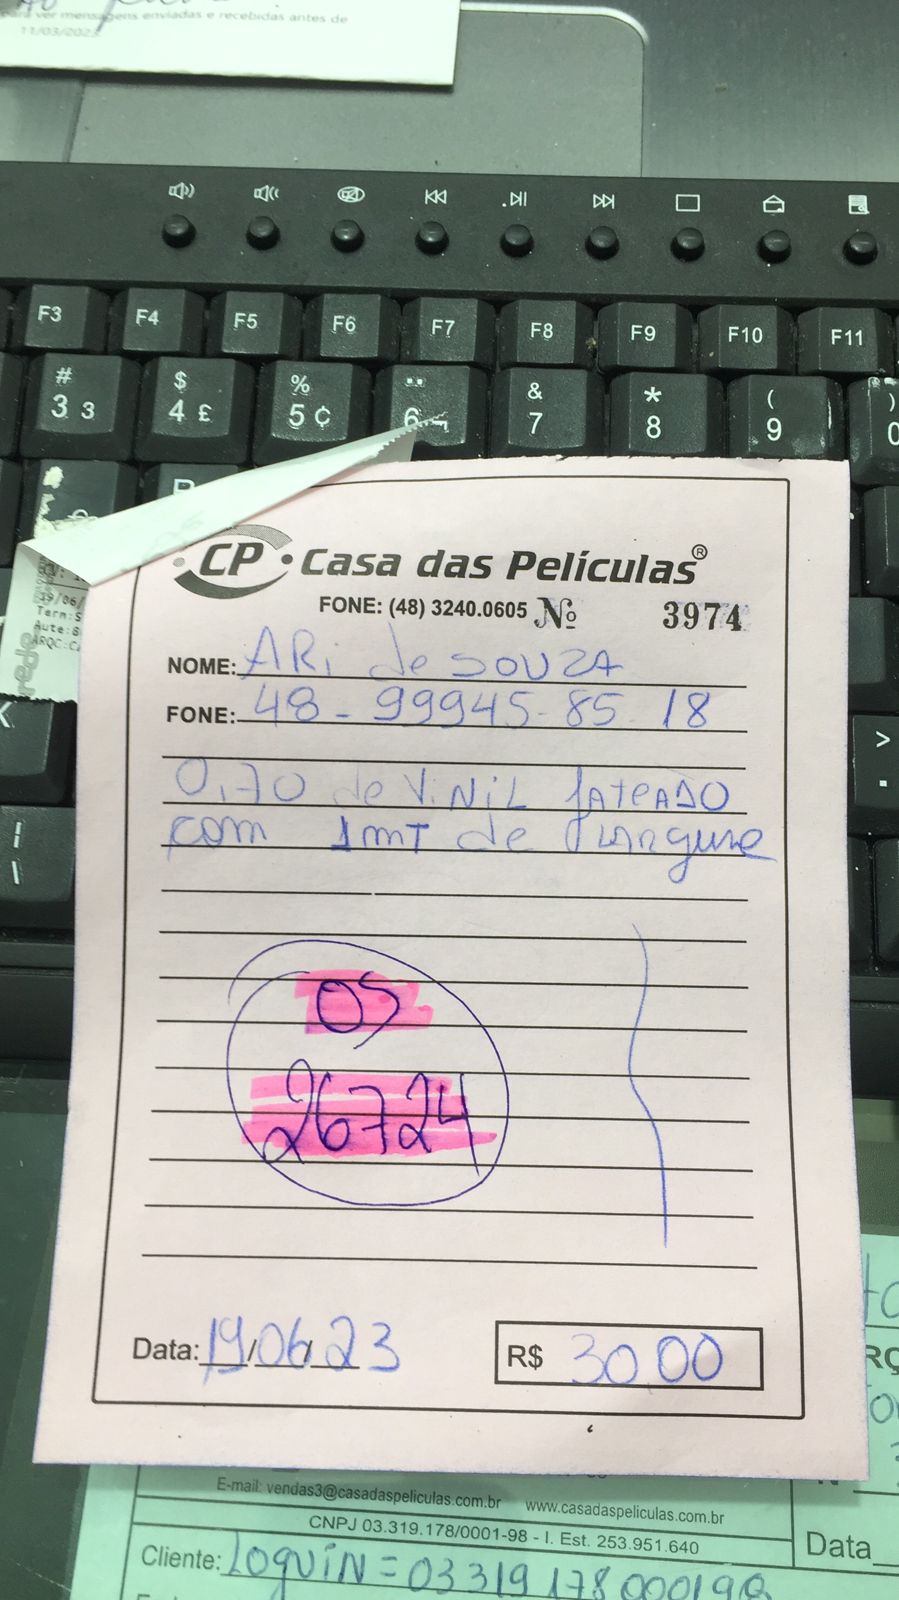 para ver mensagens enviadas e recebidas antes de
11/03/2023
F3 F4 F5 F6 F7 F8 F9 F10 F11
# $ % ¨ & * ( )
3 3 4 £ 5 ¢ 6 ¬ 7 8 9 0
CP Casa das Películas®
FONE: (48) 3240.0605 Nº 3974
19/06/
Term:S
Aute:8
ARQC:CA
rede
NOME: ARi de SOUZA
FONE: 48-99945-85-18
K
>
.
|
\
0,70 de ViNiL JATEADO
com 1mT de largura
OS
26724
Data: 19/06/23 R$ 30,00
E-mail: vendas3@casadaspeliculas.com.br www.casadaspeliculas.com.br
CNPJ 03.319.178/0001-98 - I. Est. 253.951.640
Data
Cliente: LOGUIN = 03319178000198